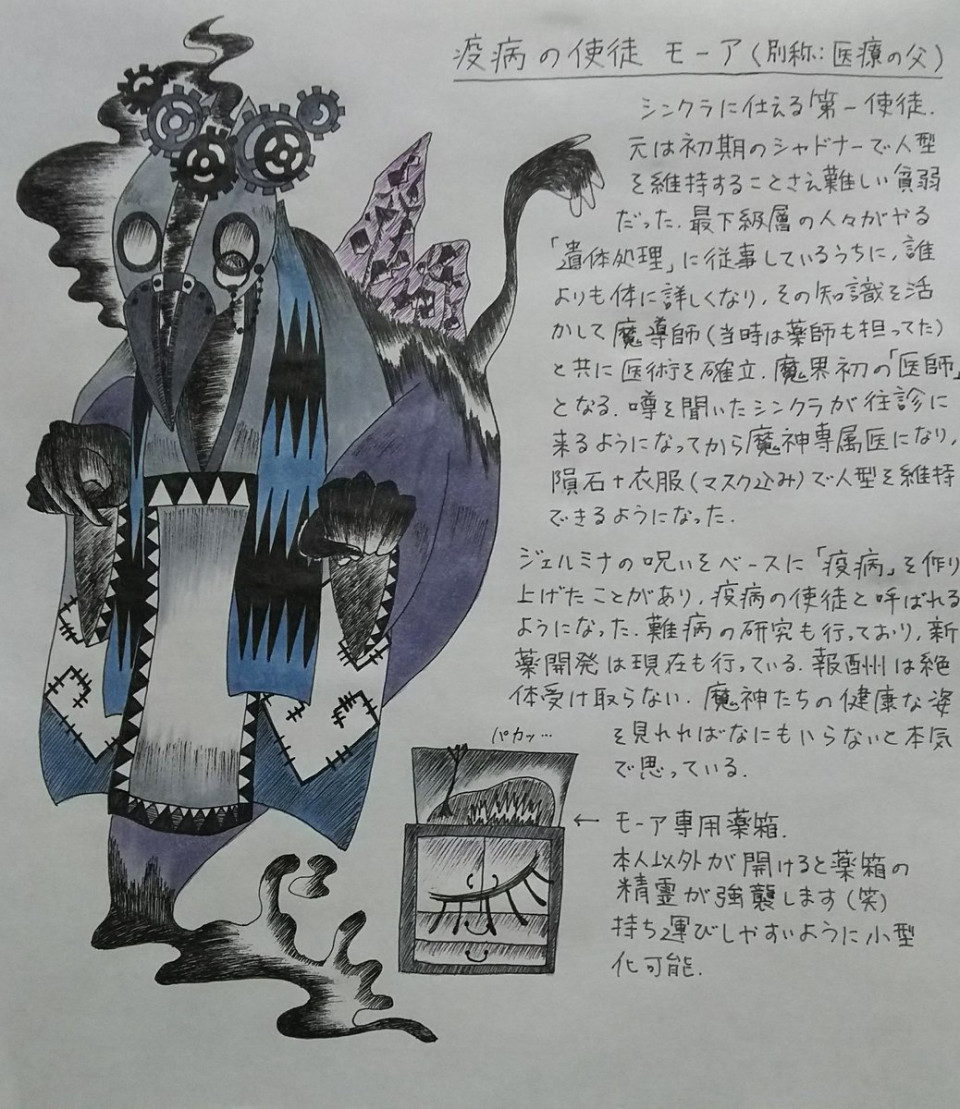 疫病の使徒 モーア(別称:医療の父)
シンクラに仕える第一使徒.
元は初期のシャドナーで人型
を維持することさえ難しい貧弱
だった.最下級層の人々がやる
「遺体処理」に従事しているうちに,誰
よりも体に詳しくなり,その知識を活
かして魔導師(当時は薬師も担ってた)
と共に医術を確立.魔界初の「医師」
となる.噂を聞いたシンクラが往診に
来るようになってから魔神専属医になり,
隕石+衣服(マスク込み)で人型を維持
できるようになった.
ジェルミナの呪いをベースに「疫病」を作り
上げたことがあり,疫病の使徒と呼ばれる
ようになった.難病の研究も行っており,新
薬開発は現在も行っている.報酬は絶
体受け取らない.魔神たちの健康な姿
を見れればなにもいらないと本気
で思っている.
パカッ…
← モーア専用薬箱.
本人以外が開けると薬箱の
精霊が強襲します(笑)
持ち運びしやすいように小型
化可能.